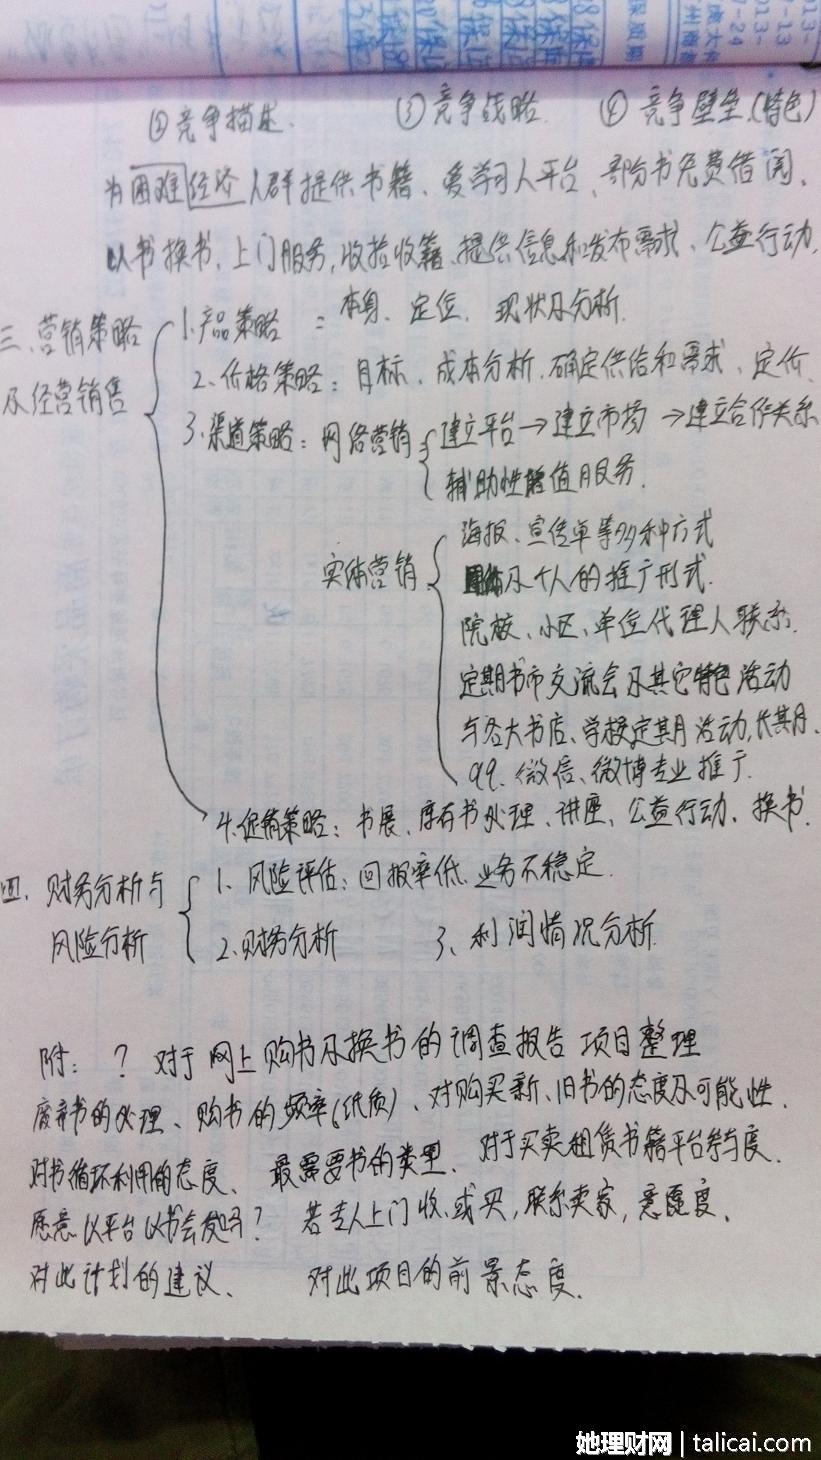 ②竞争描述. ③竞争战略 ④竞争壁垒.(特色)
为困难经济人群提供书籍、爱学习人平台、部份书免费借阅、
以书换书、上门服务,收拾收籍、提供信息和发布需求、公益行动,
三、营销策略及经营销售
1.产品策略 : 本身、定位、现状及分析.
2、价格策略:目标、成本分析、确定供给和需求、定价.
3、渠道策略:网络营销 建立平台→建立市场→建立合作关系
辅助性增值服务.
实体营销 海报、宣传单等多种方式
团体及个人的推广形式.
院校、小区、单位代理人联系.
定期书市交流会及其它特色活动
与各大书店、学校定期活动,长期、
qq、微信、微博专业推广.
4.促销策略:书展、库存书处理、讲座、公益行动、换书.
四、财务分析与风险分析
1、风险评估:回报率低、业务不稳定.
2、财务分析 3、利润情况分析.
附:?对于网上购书及换书的调查报告 项目整理
废弃书的处理、购书的频率(纸质)、对购买新、旧书的态度及可能性.
对书循环利用的态度、最需要书的类型、对于买卖租赁书籍平台参与度.
愿意以平台以书会友吗?若专人上门收、或买,联系卖家,意愿度、
对此计划的建议、对此项目的前景态度.
她理财网|talicai.com